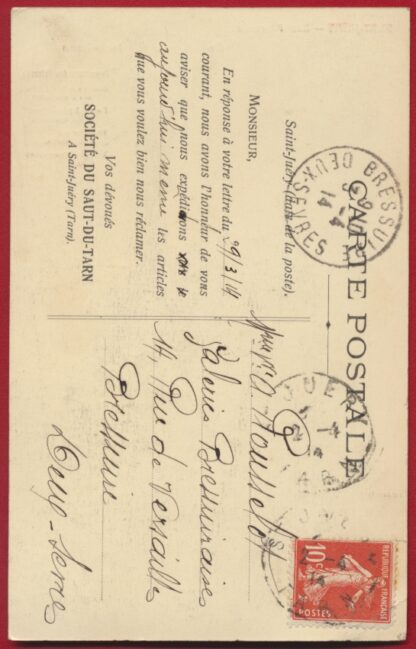 CARTE POSTALE
Saint-Juéry (date de la poste).
MONSIEUR,
En réponse à votre lettre du 29/3/14
courant, nous avons l'honneur de vous
aviser que nous expédions ce
aujourd'hui même les articles
que vous voulez bien nous réclamer.
Vos dévoués
SOCIÉTÉ DU SAUT-DU-TARN
A Saint-Juéry (Tarn).
A. Rousselot
Galeries Bressuiraises
14, Rue de Versailles
Bressuire
Deux-Sèvres
BRESSUIRE
14-4
DEUX-SEVRES
REPUBLIQUE FRANÇAISE
10c
POSTES